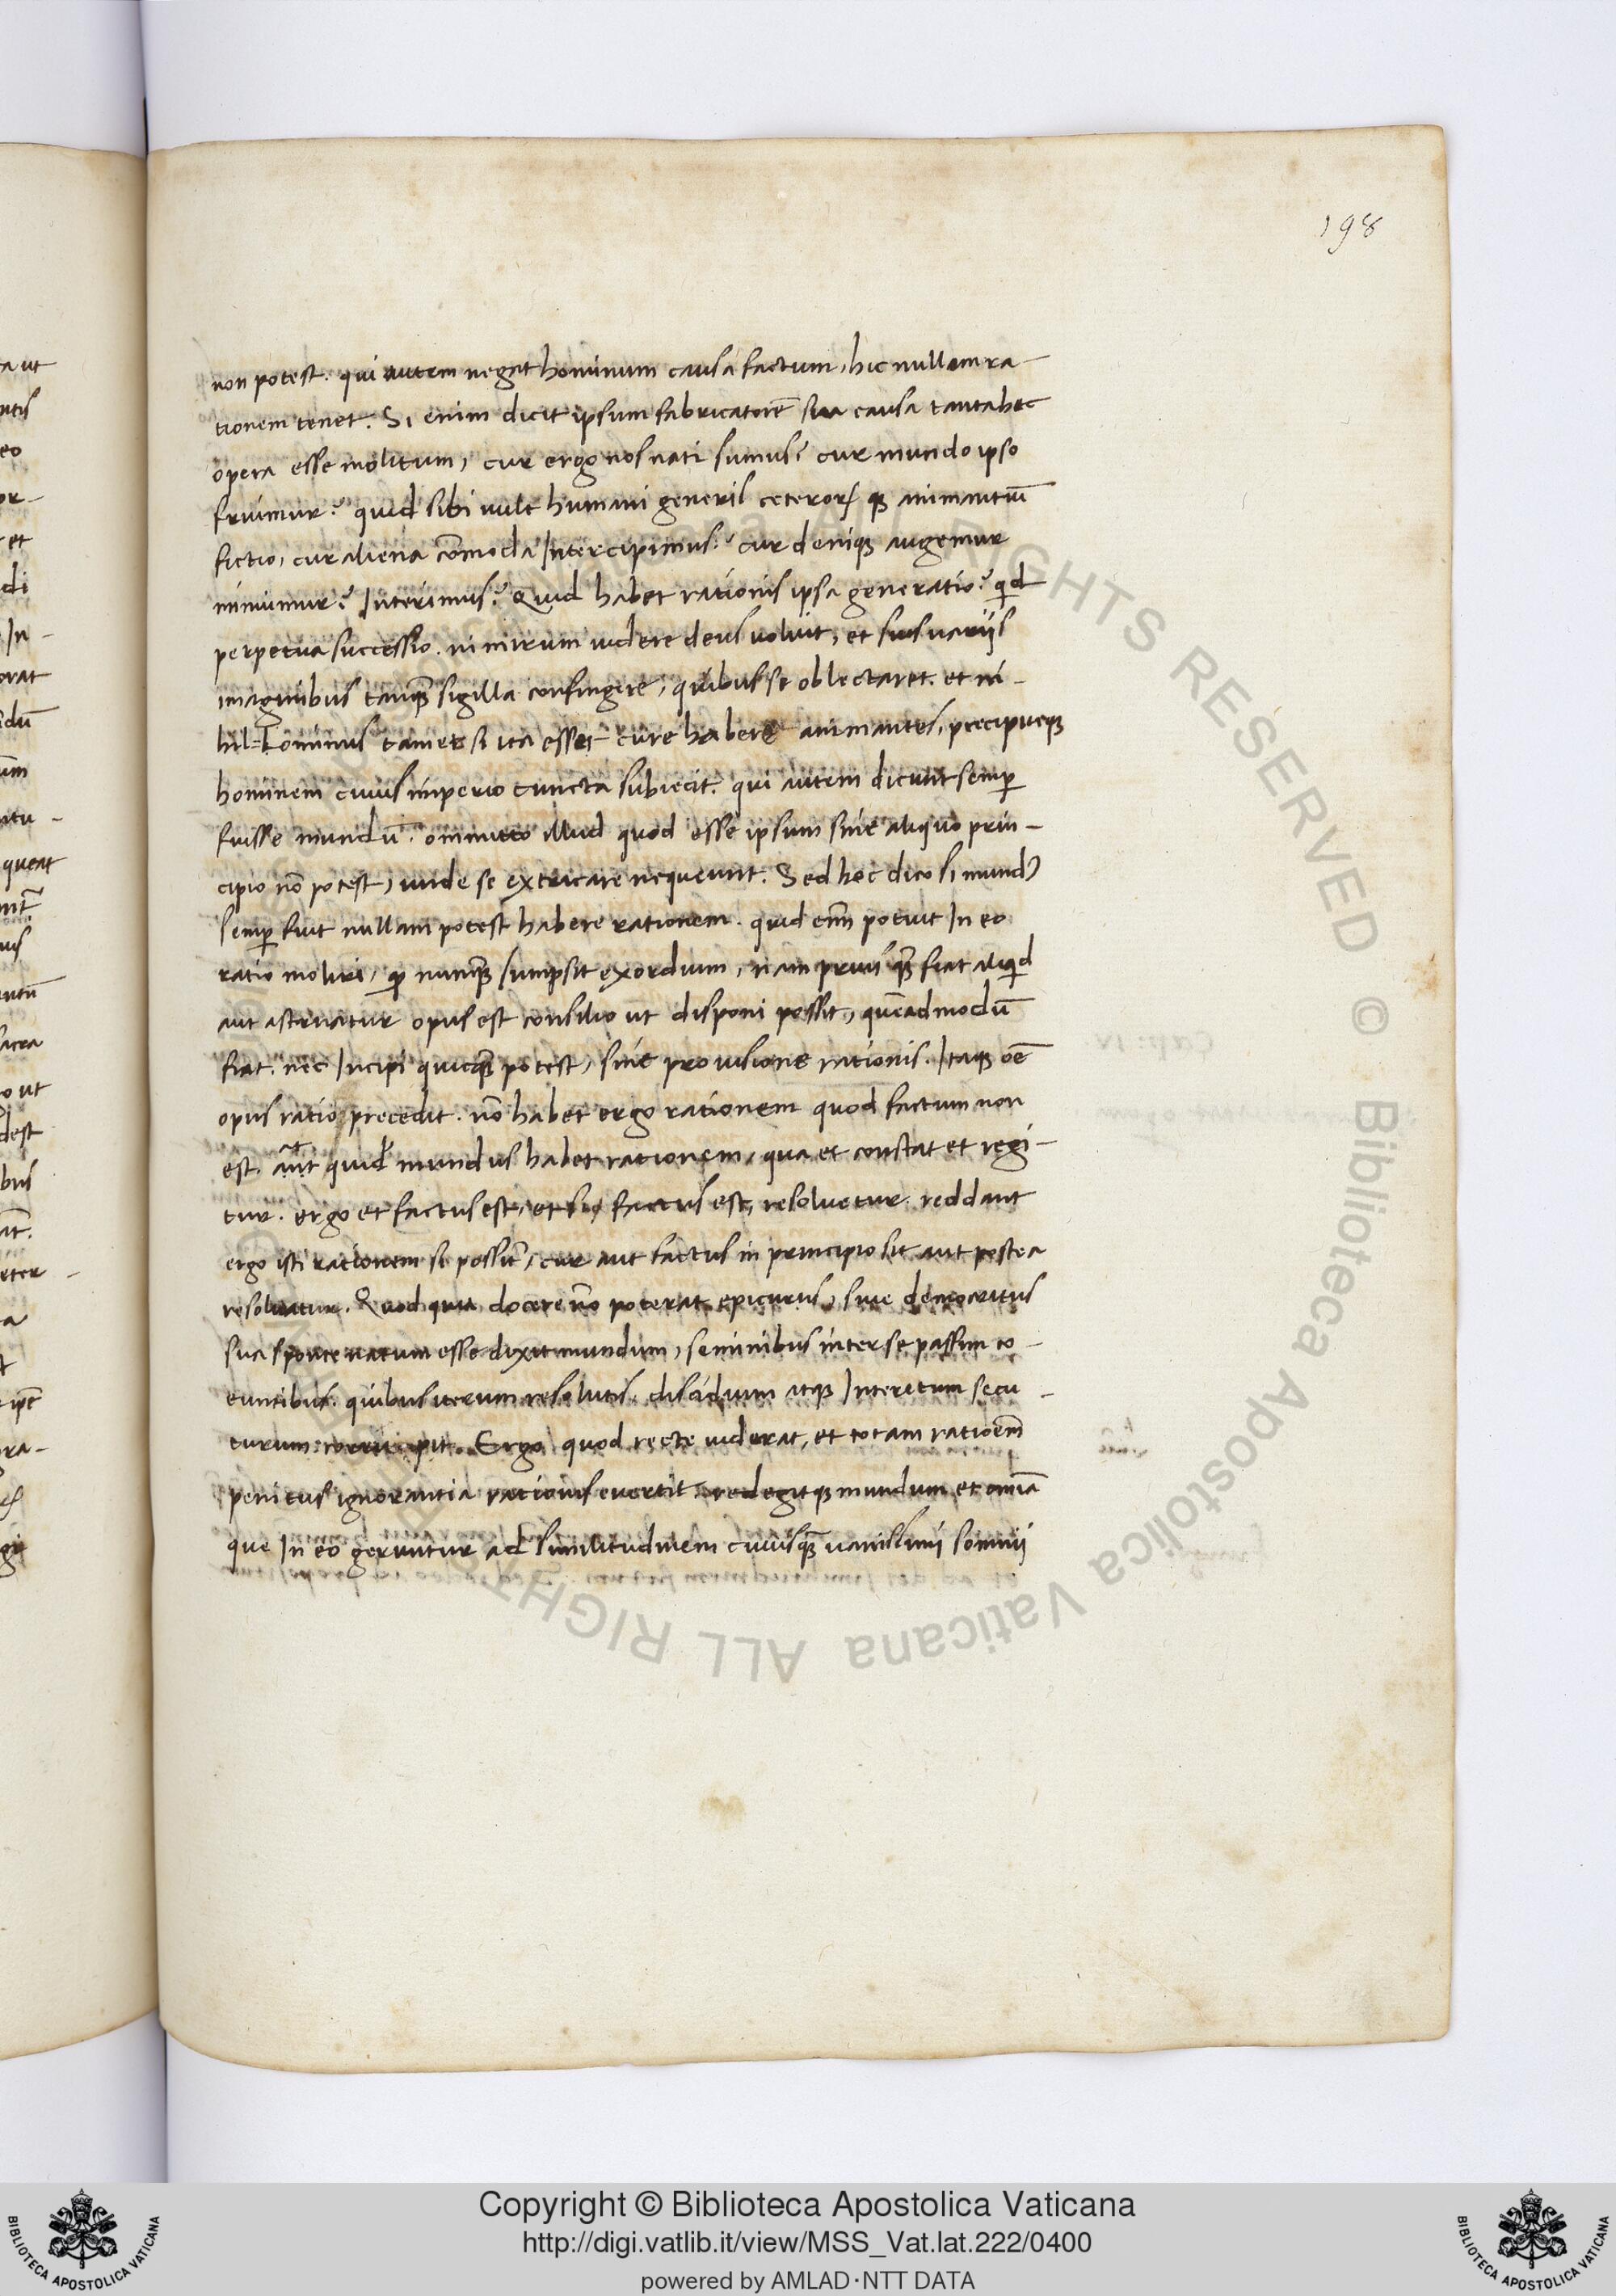 198
non potest. qui autem negat hominum causa factum, hic nullam ra-
tionem tenet. Si enim dicit ipsum fabricatorē sua causa tanta hec
opera esse molitum, cur ergo nos nati sumus? cur mundo ipso
fruimur? quid sibi uult humani generis ceterorꝝ qꝫ animantiū
fictio, cur aliena cōmoda Intercipimus? cur deniqꝫ augemur
minuimur? Interimus? Quid habet rationis ipsa generatio? qid
perpetua successio. nimirum uidere deus uoluit, et suis uarijs
imaginibus tanqꝫ̄ sigilla confingere, quibus se oblectaret. et ni-
hil=Lominus tamet si ita esset cure habere animantes, precipueqꝫ
hominem cuius imperio cuncta subiecit. qui autem dicunt semꝑ
fuisse mundū. ommitto illud quod esse ipsum sine aliquo prin-
cipio nō potest, unde se extricare nequeunt. Sed hoc dico si mundꝰ
semꝑ fuit nullam potest habere rationem. quid enī potuit In eo
ratio moliri, qꝫ nunqꝫ̄ sumpsit exordium, nam prius qꝫ̄ fiat aliqid
aut astruatur opus est consilio ut disponi possit, quēadmodū
fiat. nec Incipi quicqꝫ̄ potest, sine prouisione rationis. Itaqꝫ oē
opus ratio precedit. nō habet ergo rationem quod factum non
est. aut quid mundus habet rationem, qua et constat et regi-
tur. ergo et factus est, et si factus est, resoluetur. reddant
ergo isti rationem si possūt, cur aut factus in principio sit aut postea
resoluatur. Quod quia docere nō poterat epicurus, siue democritus
sua sponte natum esse dixit mundum, seminibus inter se passim co-
euntibus. quibus iterum resolutis, discidium atqꝫ Interitum secu-
turum: corrupit. Ergo quod recte uiderat, et totam rationē
penitus ignorantia rationis euertit redegitqꝫ mundum et omīa
que In eo geruntur ad similitudinem cuiusqꝫ̄ uanissimi somnij
Copyright © Biblioteca Apostolica Vaticana
http://digi.vatlib.it/view/MSS_Vat.lat.222/0400
powered by AMLAD·NTT DATA